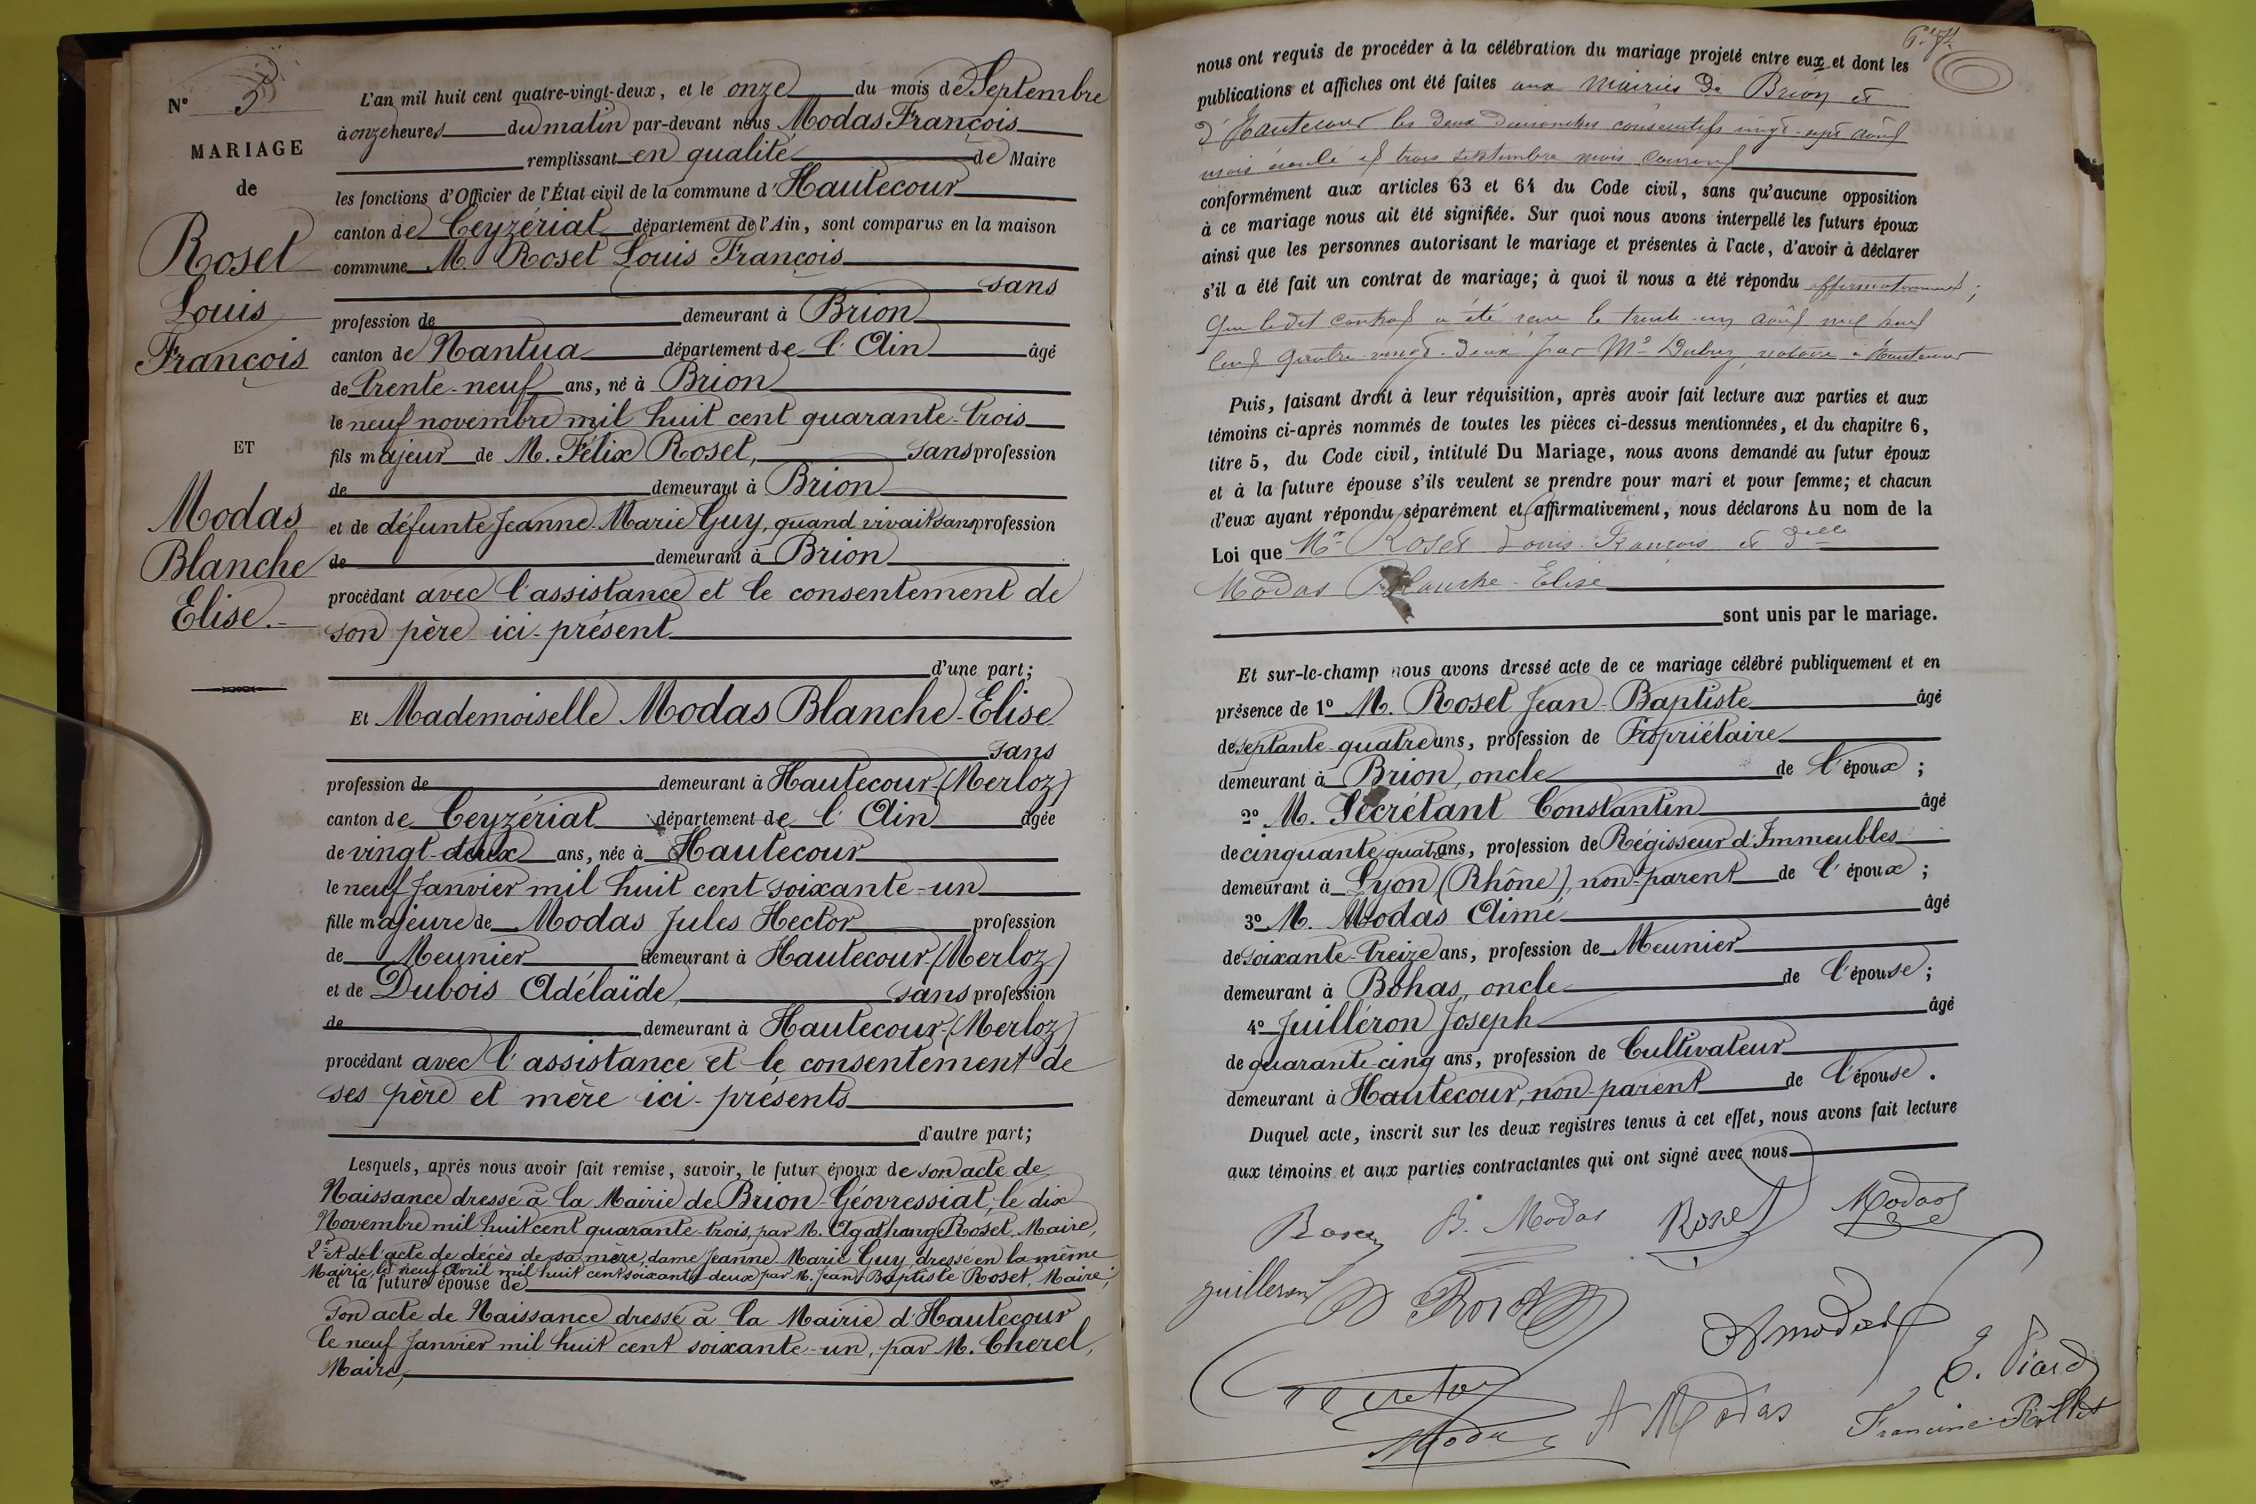 N° 5
MARIAGE
de
Roset
Louis
François
ET
Modas
Blanche
Elise.
L'an mil huit cent quatre-vingt-deux, et le onze du mois de Septembre
à onze heures du matin par-devant nous Modas François
remplissant en qualité de Maire
les fonctions d'Officier de l'État civil de la commune d'Hautecour
canton de Ceyzériat département de l'Ain, sont comparus en la maison
commune M. Roset Louis François
sans
profession de demeurant à Brion
canton de Nantua département de l'Ain âgé
de trente-neuf ans, né à Brion
le neuf novembre mil huit cent quarante-trois
fils majeur de M. Félix Roset, sans profession
de demeurant à Brion
et de défunte Jeanne-Marie Guy, quand vivait sans profession
de demeurant à Brion
procédant avec l'assistance et le consentement de
son père ici-présent
d'une part;
Et Mademoiselle Modas Blanche-Elise
sans
profession de demeurant à Hautecour-(Merloz)
canton de Ceyzériat département de l'Ain âgée
de vingt-deux ans, née à Hautecour
le neuf Janvier mil huit cent soixante-un
fille majeure de Modas Jules Hector profession
de Meunier demeurant à Hautecour-(Merloz)
et de Dubois Adélaïde, sans profession
de demeurant à Hautecour-(Merloz)
procédant avec l'assistance et le consentement de
ses père et mère ici-présents
d'autre part;
Lesquels, après nous avoir fait remise, savoir, le futur époux de son acte de
Naissance dressé à la Mairie de Brion-Géovressiat, le dix
Novembre mil huit cent quarante-trois, par M. Agathange Roset, Maire,
2° et de l'acte de décès de sa mère, dame Jeanne-Marie Guy, dressé en la même
Mairie, le neuf Avril mil huit cent soixante-deux par M. Jean-Baptiste Roset, Maire;
et la future épouse de
son acte de Naissance dressé à la Mairie d'Hautecour
le neuf Janvier mil huit cent soixante-un, par M. Cherel,
Maire,
nous ont requis de procéder à la célébration du mariage projeté entre eux et dont les
publications et affiches ont été faites aux Mairies de Brion et
d'Hautecour les deux dimanches consécutifs vingt-sept août
mois écoulé et trois septembre mois courant
conformément aux articles 63 et 64 du Code civil, sans qu'aucune opposition
à ce mariage nous ait été signifiée. Sur quoi nous avons interpellé les futurs époux
ainsi que les personnes autorisant le mariage et présentes à l'acte, d'avoir à déclarer
s'il a été fait un contrat de mariage; à quoi il nous a été répondu affirmativement;
Que ledit contrat a été reçu le trente-un août mil huit
cent quatre-vingt-deux par Me notaire à Hautecour
Puis, faisant droit à leur réquisition, après avoir fait lecture aux parties et aux
témoins ci-après nommés de toutes les pièces ci-dessus mentionnées, et du chapitre 6,
titre 5, du Code civil, intitulé Du Mariage, nous avons demandé au futur époux
et à la future épouse s'ils veulent se prendre pour mari et pour femme; et chacun
d'eux ayant répondu séparément et affirmativement, nous déclarons Au nom de la
Loi que Mr Roset Louis-François et Delle
Modas Blanche-Elise
sont unis par le mariage.
Et sur-le-champ nous avons dressé acte de ce mariage célébré publiquement et en
présence de 1° M. Roset Jean-Baptiste âgé
de septante-quatre ans, profession de Propriétaire
demeurant à Brion, oncle de l'époux;
2° M. Secrétant Constantin âgé
de cinquante-quat. ans, profession de Régisseur d'Immeubles
demeurant à Lyon (Rhône), non-parent de l'époux;
3° M. Modas Aimé âgé
de soixante-treize ans, profession de Meunier
demeurant à Bohas, oncle de l'épouse;
4° Juilléron Joseph âgé
de quarante-cinq ans, profession de Cultivateur
demeurant à Hautecour, non-parent de l'épouse.
Duquel acte, inscrit sur les deux registres tenus à cet effet, nous avons fait lecture
aux témoins et aux parties contractantes qui ont signé avec nous
B. Modas Roset Modas
juilleron
Modas
A Modas
Francine Rollet